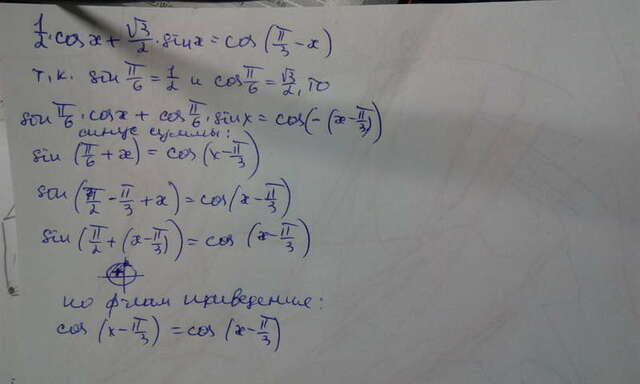 1/2·cosx + √3/2·sinx = cos(π/3 - x)
т.к. sin π/6 = 1/2 и cos π/6 = √3/2, то
sin π/6·cosx + cos π/6·sinx = cos(-(x - π/3))
синус суммы:
sin(π/6 + x) = cos(x - π/3)
sin(π/2 - π/3 + x) = cos(x - π/3)
sin(π/2 + (x - π/3)) = cos(x - π/3)
по ф-лам приведения:
cos(x - π/3) = cos(x - π/3)